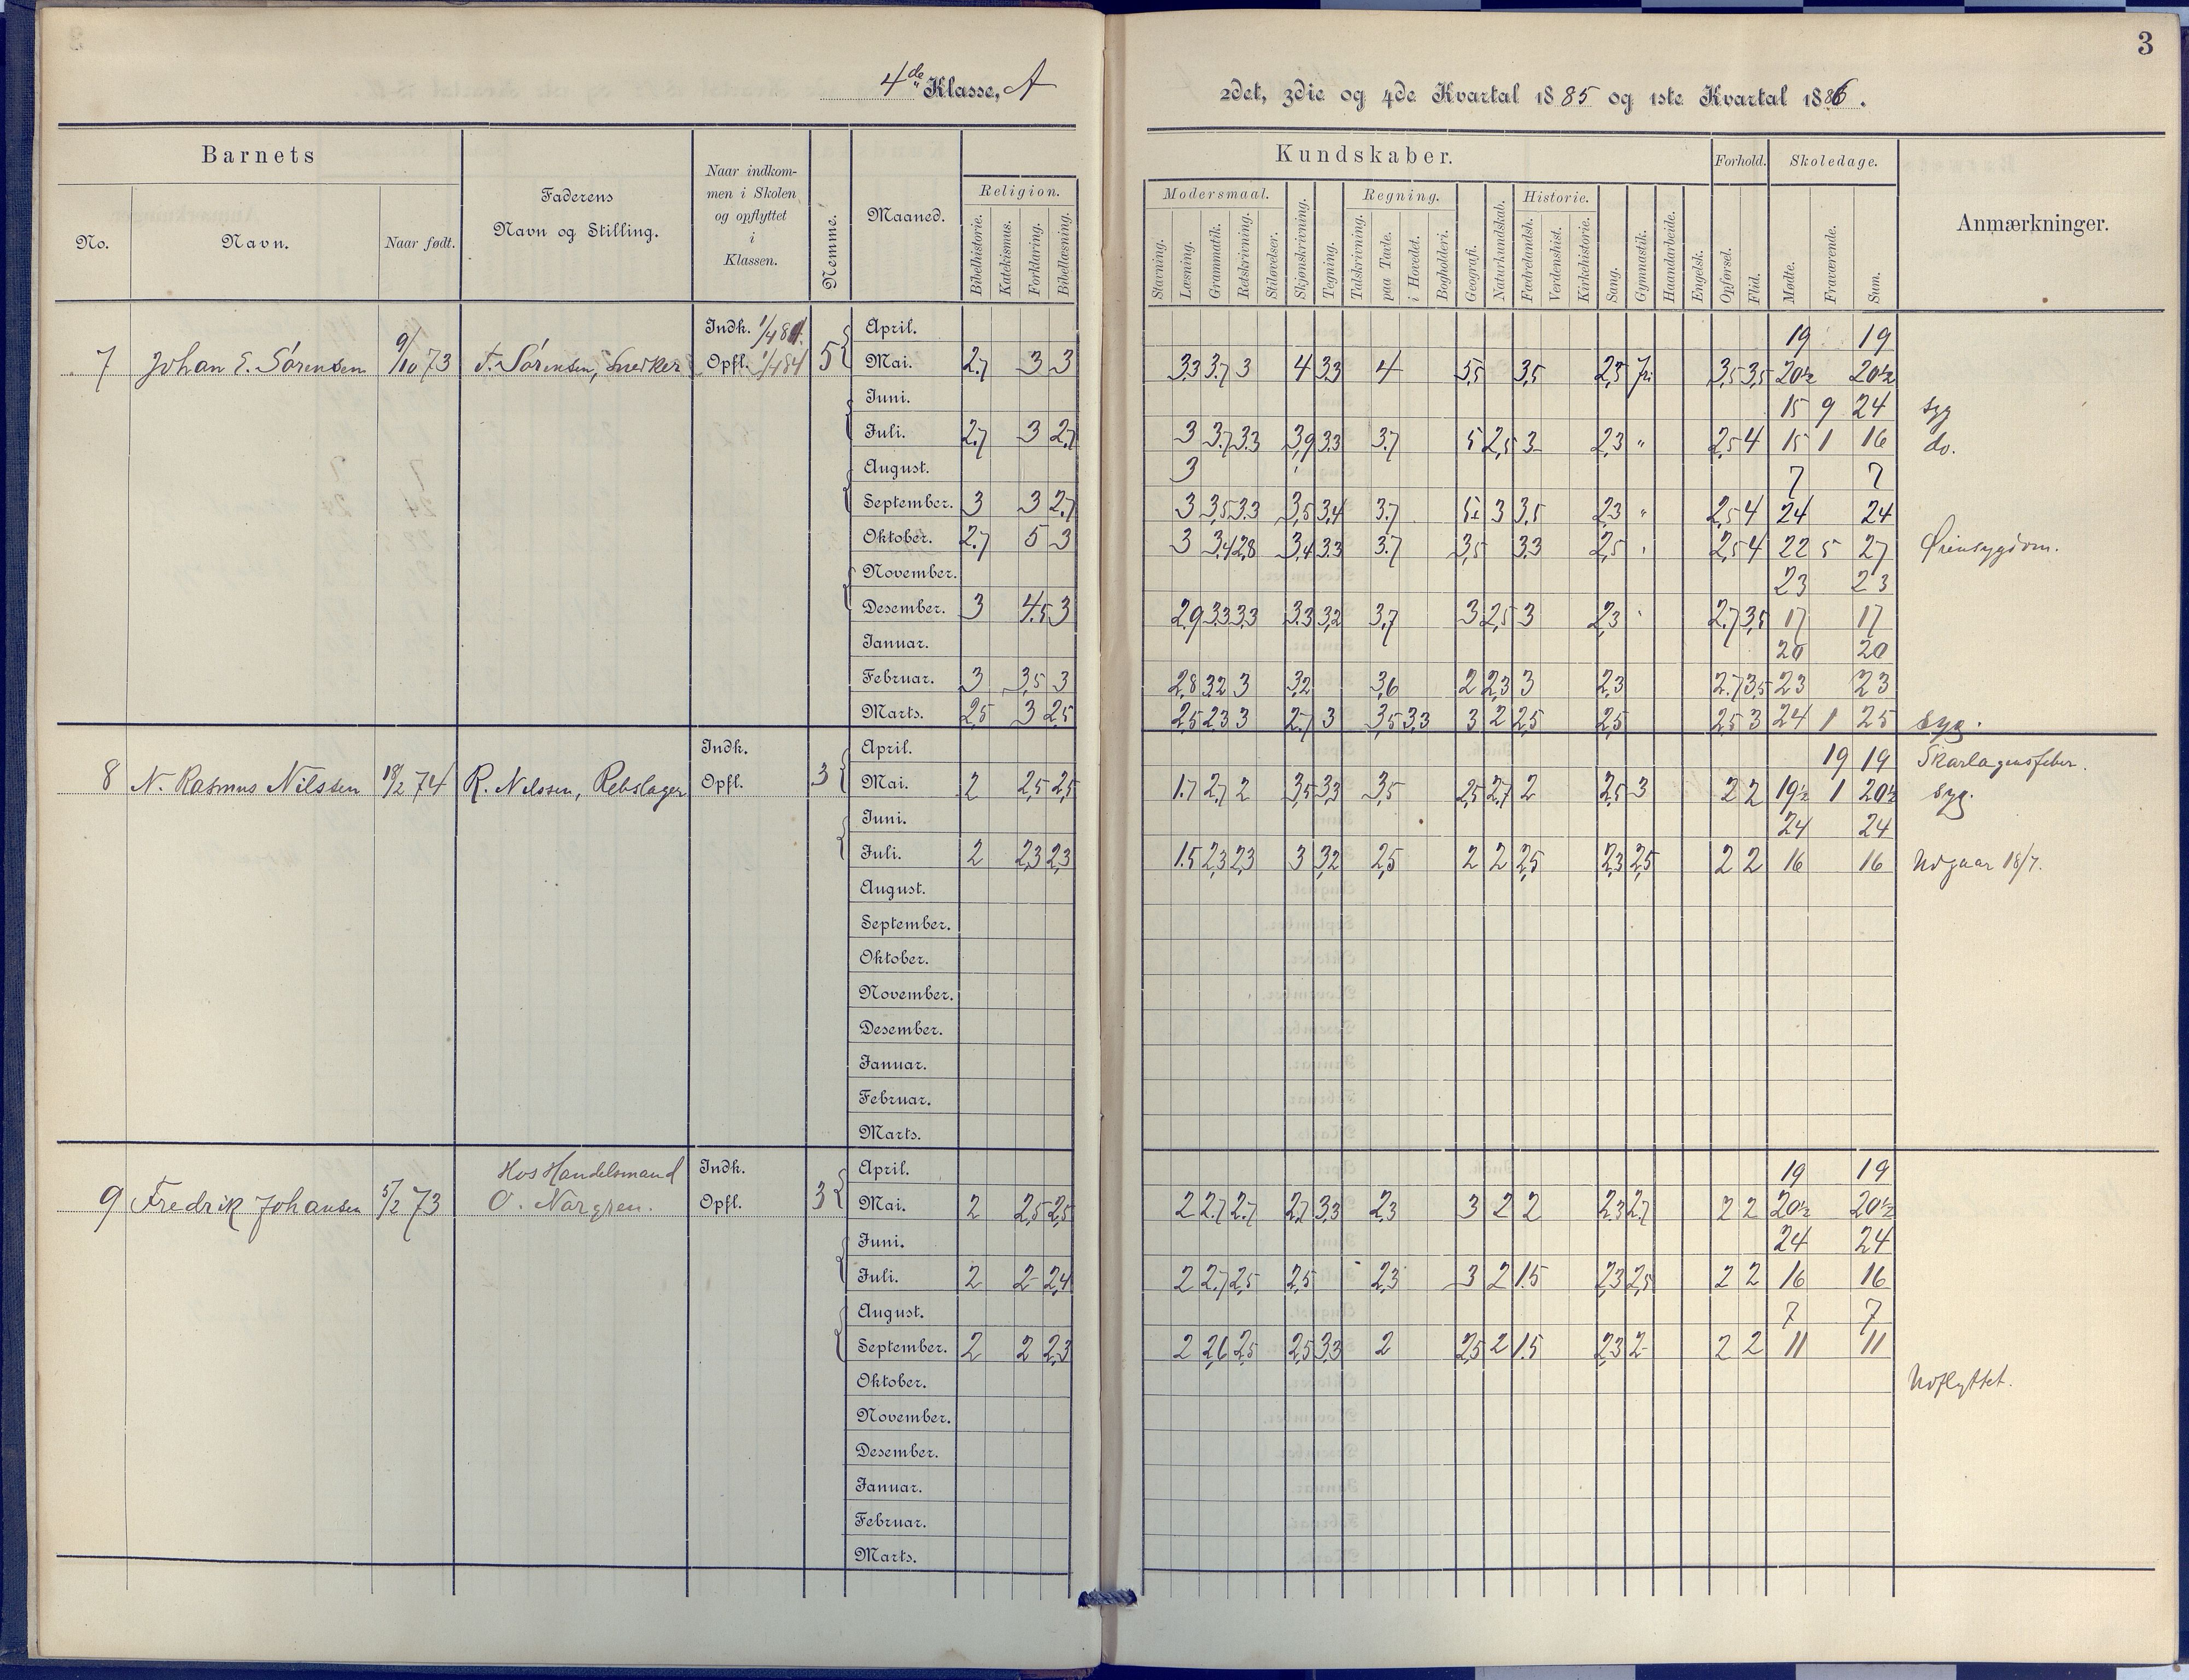 3
4de Klasse, A
2det, 3die og 4de Kvartal 1885 og 1ste Kvartal 1886.
Barnets
No.
Navn.
Naar født.
Faderens
Navn og Stilling.
Naar indkom-
men i Skolen
og opflyttet
i
Klassen.
Nemme.
Maaned.
Religion.
Bibelhistorie.
Katekismus.
Forklaring.
Bibellæsning.
Kundskaber.
Modersmaal.
Stavning.
Læsning.
Grammatik.
Retskrivning.
Stiløvelser.
Skjønskrivning.
Tegning.
Regning.
Talskrivning.
paa Tavle.
i Hovedet.
Bogholderi.
Geografi.
Naturkundskab.
Historie.
Fædrelandsh.
Verdenshist.
Kirkehistorie.
Sang.
Gymnastik.
Haandarbeide.
Engelsk.
Forhold.
Opførsel.
Flid.
Skoledage.
Mødte.
Fraværende.
Sum.
Anmærkninger.
Indk. April. 19 19
7 Johan E. Sørensen 9/10 73 Sørensen, Snedker Opfl. 1/4 84 5 Mai. 2.7 3 3 3.3 3.7 3 4 3.3 4 3,5 3,5 2,3 fri 3,5 3,5 20½ 20½
Juni. 15 9 24 syg
Juli. 2.7 3 2.7 3 3.7 3.3 3,9 3.3 3.7 5 2,5 3 2,3 " 2,5 4 15 1 16 do.
August. 3 7 7
September. 3 3 2.7 3 3,5 3.3 3,5 3,4 3.7 3 3,5 2,3 " 2,5 4 24 24
Oktober. 2.7 5 3 3 3,4 2,8 3,4 3.3 3.7 3,5 3.3 2,5 " 2,5 4 22 5 27 Øiensygdom.
November. 23 23
Desember. 3 4.5 3 2.9 3.3 3.3 3.3 3.2 3,7 3 2,5 3 2,3 " 2.7 3,5 17 17
Januar. 20 20
Februar. 3 3,5 3 2,8 3.2 3 3,2 3,6 2 2,3 3 2,3 2.7 3,5 23 23
Marts. 2,5 3 2,5 2,5 2.3 3 2.7 3 3,5 3.3 3 2 2,5 2,5 2,5 3 24 1 25 syg.
Indk. April. 19 19 Skarlagensfeber.
8 N. Rasmus Nilssen 18/2 74 R. Nilssen, Rebslager Opfl. 3 Mai. 2 2,5 2,5 1.7 2,7 2 3,5 3.3 3,5 2,5 2,7 2 2,5 3 2 2 19½ 1 20½ syg.
Juni. 24 24
Juli. 2 2,3 2,3 1.5 2,3 2,3 3 3,2 2,5 2 2 2,5 2,3 2,5 2 2 16 16 Udgaar 18/7.
August.
September.
Oktober.
November.
Desember.
Januar.
Februar.
Marts.
Hos Handelsmand Indk. April. 19 19
9 Fredrik Johansen 5/2 73 O. Norgren. Opfl. 3 Mai. 2 2,5 2,5 2 2.7 2.7 2,7 3,3 2,3 3 2 2 2,3 2,7 2 2 20½ 20½
Juni. 24 24
Juli. 2 2 2,4 2 2,7 2,5 2,5 2,3 3 2 1.5 2,3 2,5 2 2 16 16
August. 7 7
September. 2 2 2,3 2 2,6 2,5 2,5 3,3 2 2,5 2 1.5 2,3 2 2 2 11 11
Oktober. Udflyttet.
November.
Desember.
Januar.
Februar.
Marts.